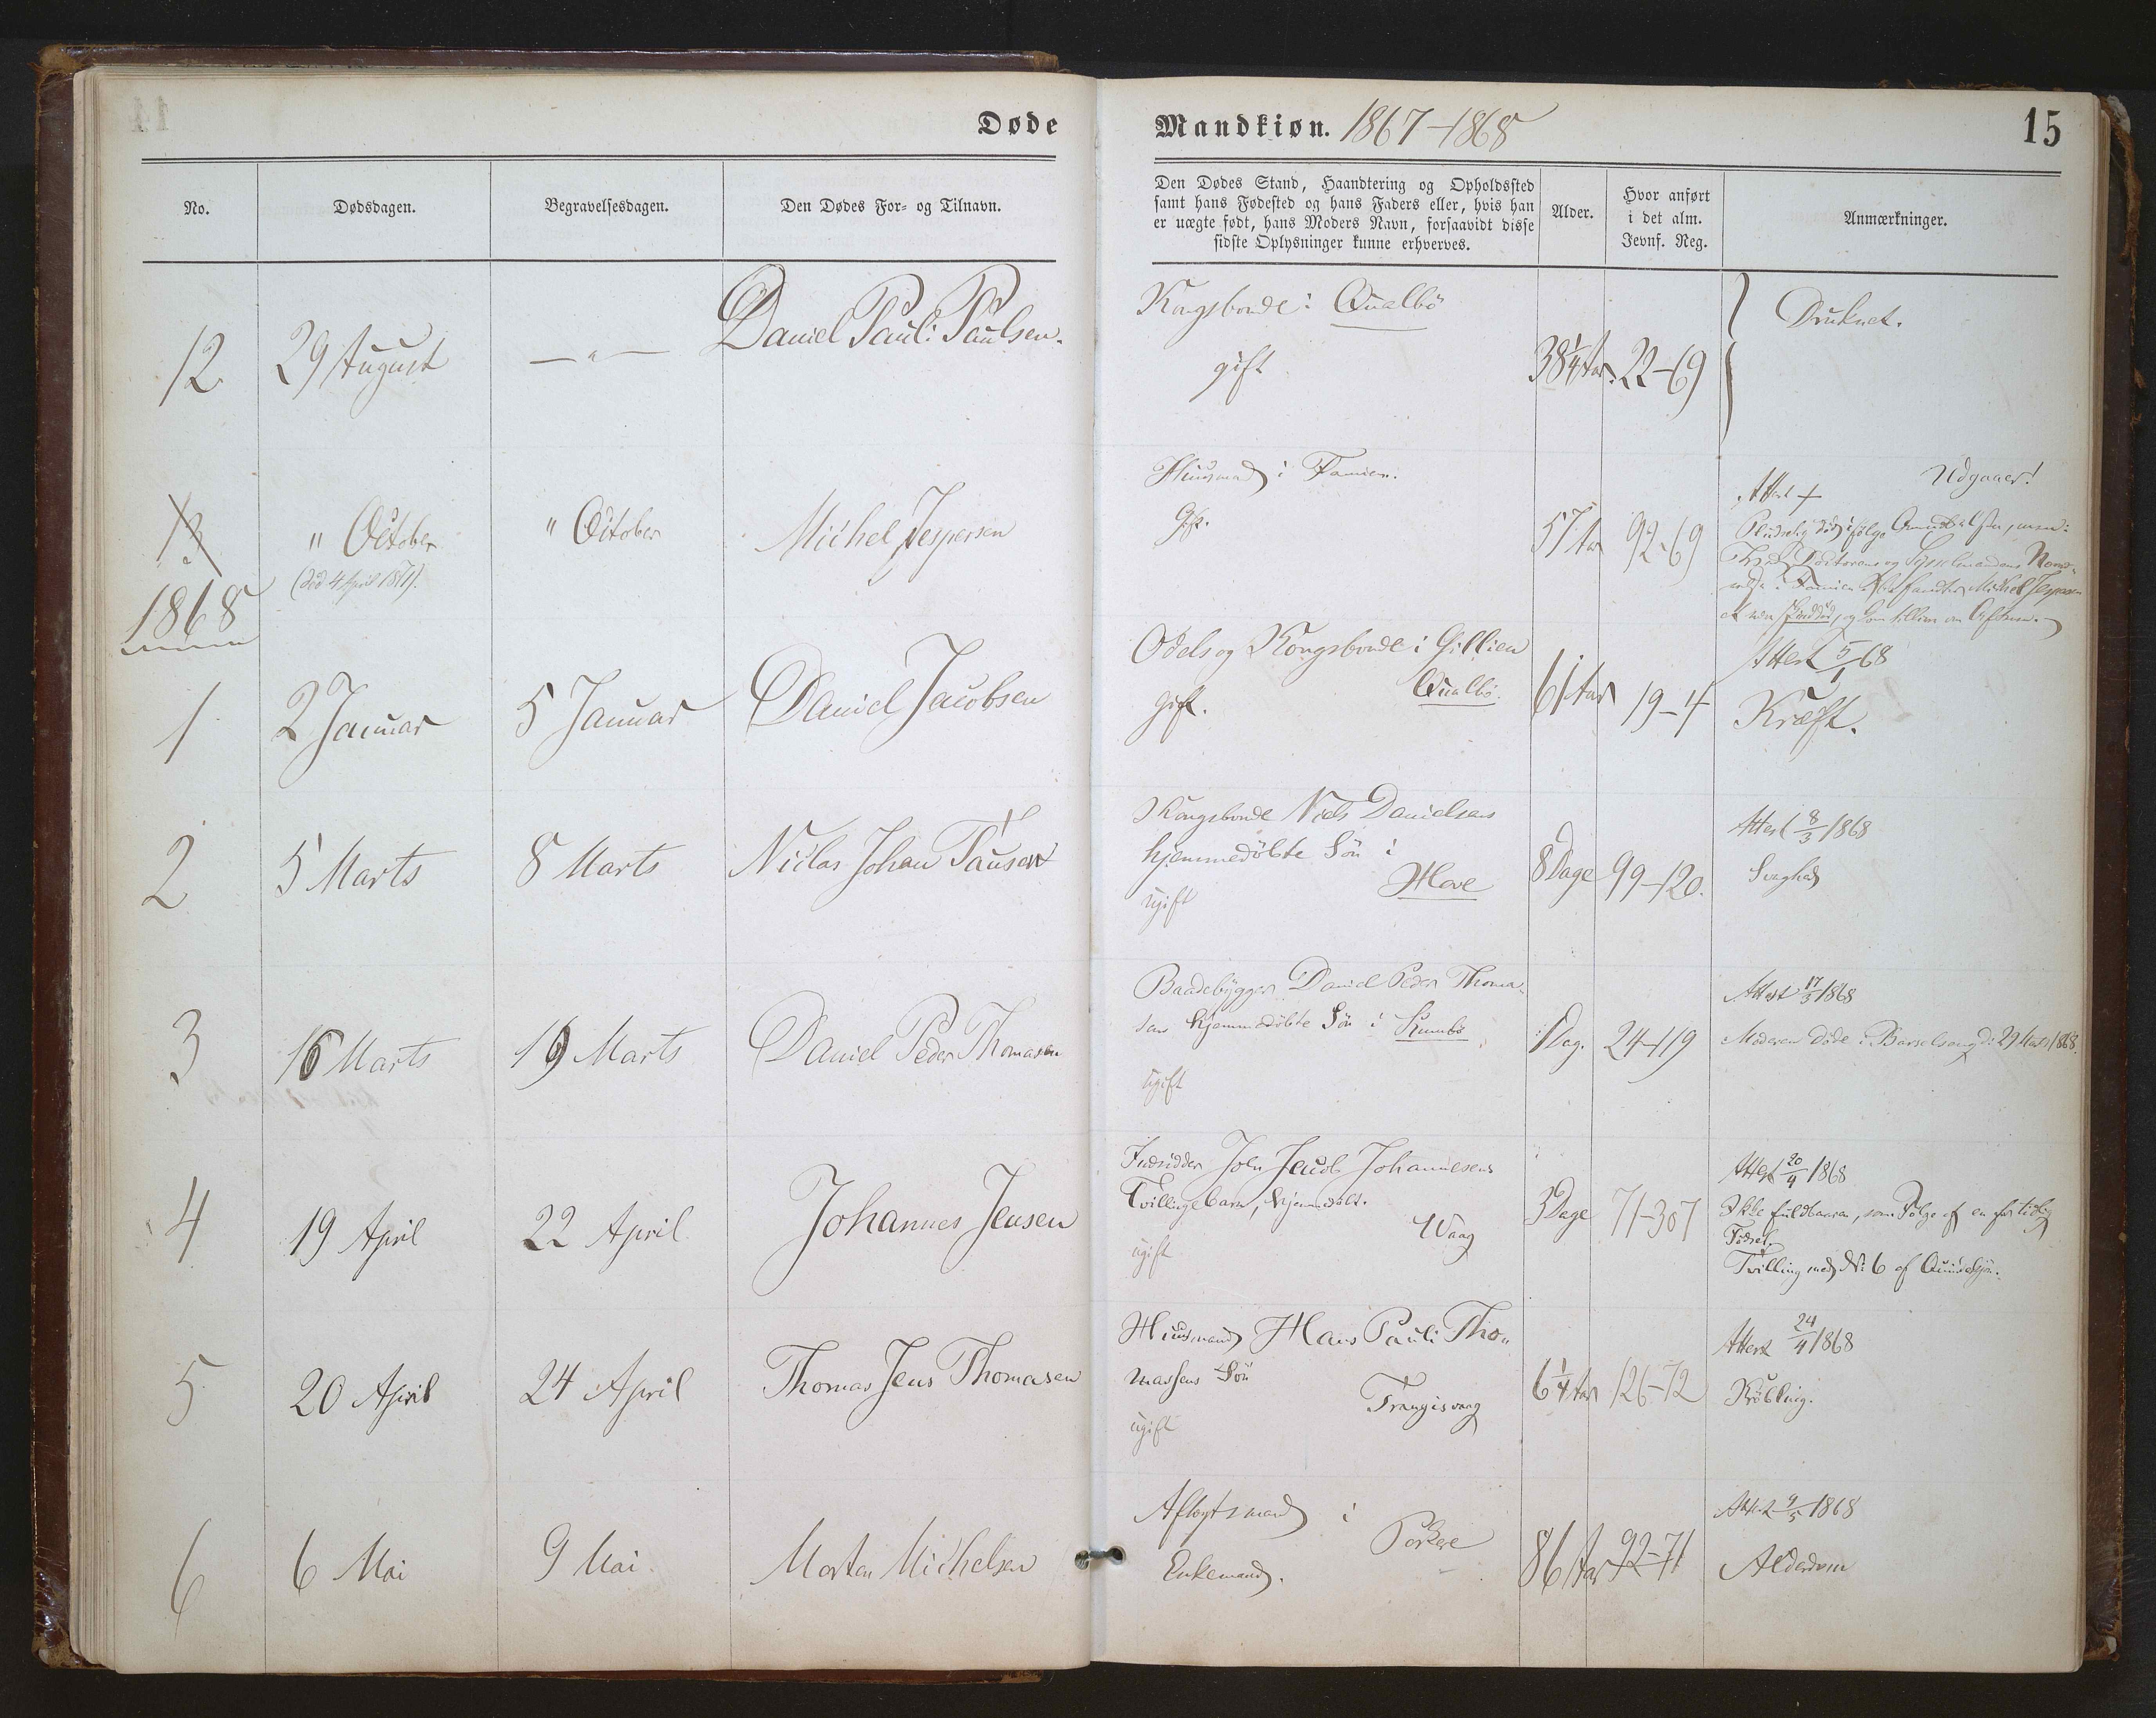 Døde
Mandkiøn. 1867-1868
15
No.
Dødsdagen.
Begravelsesdagen.
Den Dødes For- og Tilnavn.
Den Dødes Stand, Haandtering og Opholdssted
samt hans Fødested og hans Faders eller, hvis han
er uægte født, hans Moders Navn, forsaavidt disse
sidste Oplysninger kunne erhverves.
Alder.
Hvor anført
i det alm.
Jevnf. Reg.
Anmærkninger.
12
29 August
— " —
Daniel Pauli Paulsen.
Kongsbonde i Qualbö
gift
38 1/4 Aar.
22-69
Druknet.
13
" October
(död 4 April 1871).
" October
Michel Jespersen
Huusmand i Famien.
Gift.
57 Aar
92-69
Attest +
Udgaaer!
Pludselig död ifölge
Michel Jespersen
1868
1
2 Januar
5 Januar
Daniel Jacobsen
Odels og Kongsbonde i
Qualbö.
gift.
61 Aar
19-4
Attest 5/1 68
Kræft.
2
5 Marts
8 Marts
Niclas Johan
Kongsbonde Niels Danielsens
hjemmedöbte Sön i
Hove
ugift
8 Dage
99-120.
Attest 8/3 1868
Svaghed
3
16 Marts
19 Marts
Daniel Peder Thomasen
Baadebygger Daniel Peder Thoma-
sens hjemmedöbte Sön i Sumbö
ugift
1 Dag.
24-119
Attest 17/3 1868
Moderen döde i Barselseng d: 29 Marts 1868.
4
19 April
22 April
Johannes Jensen
Indsidder Joen Jacob Johannesens
Tvillingebarn, hjemmedöbt.
Waag
ugift
3 Dage
71-307
Attest 20/4 1868
Ikke fuldbaaren, som Fölge af en for tidlig
Födsel.
Tvilling med No: 6 af Quindekjön.
5
20 April
24 April
Thomas Jens Thomasen
Huusmand Hans Pauli Tho-
massens Sön
Trangisvaag
ugift
6 1/4 Aar
126-72
Attest 24/4 1868
6
6 Mai
9 Mai.
Morten Michelsen
Aftægtsmand i
Porkere
Enkemand.
86 Aar
92-71
Attest 9/5 1868
Alderdom